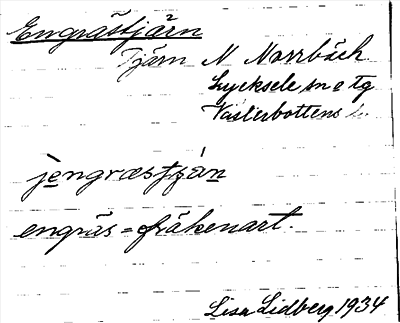 Engrästjärn
Tjärn N Norrbäck
Lycksele sn o tg
Västerbottens
jengræstjạ́n
engräs = fräkenart.
Lisa Lidberg 1934